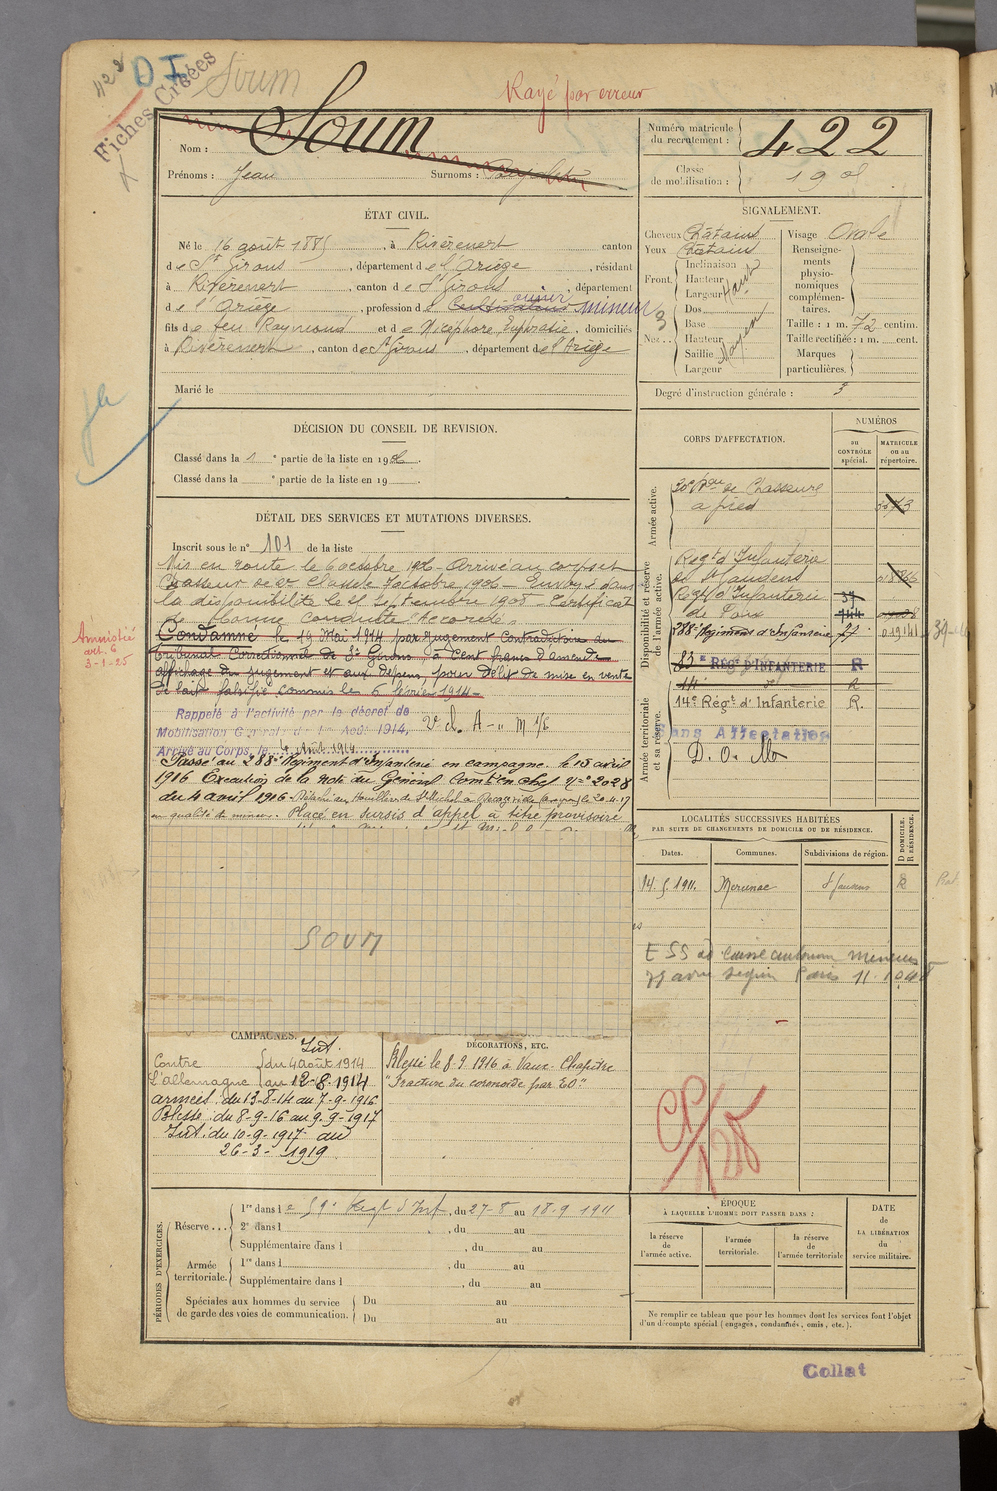 422
DI
Fiches Créées
Soum
Rayé par erreur
Nom : Soum
Prénoms : Jean Surnoms :
Numéro matricule du recrutement : 422
Classe de mobilisation : 190
ÉTAT CIVIL.
Né le 16 août 1885, à Rivèrenert canton
de St Girons, département de l'Ariège, résidant
à Rivèrenert, canton de St Girons, département
de l'Ariège, profession de Cultivateur mineur
fils de feu Raymond et de Nicephore Euphrasie, domiciliés
à Rivèrenert, canton de St Girons, département de l'Ariège
Marié le
SIGNALEMENT.
Cheveux Châtains
Yeux Châtains
Front. Inclinaison
Hauteur
Largeur Haut
Nez. Dos
Base
Hauteur
Saillie Moyen
Largeur
Visage Ovale
Renseignements physionomiques complémentaires.
Taille : 1 m. 72 centim.
Taille rectifiée : 1 m. cent.
Marques particulières.
Degré d'instruction générale : 3
DÉCISION DU CONSEIL DE REVISION.
Classé dans la 1 e partie de la liste en 1906.
Classé dans la e partie de la liste en 19 .
DÉTAIL DES SERVICES ET MUTATIONS DIVERSES.
Inscrit sous le n° 101 de la liste
Mis en route le 6 octobre 1906 - Arrivé au corps et
Chasseur de 2e Classe 7 octobre 1906 - Envoyé dans
la disponibilité le Septembre 1908 - Certificat
de Bonne Conduite "Accordé"
Condamné le 19 Mai 1914 par jugement Contradictoire du
Tribunal Correctionnel de St Girons, à Cent francs d'amende
affichage du jugement et aux dépens, pour délit de mise en vente
de lait falsifié commis le 6 février 1914 -
Amnistié
art. 6
3-1-25
Rappelé à l'activité par le décret de
Mobilisation Générale du 1er Août 1914,
Arrivé au Corps, le 4 Août 1914
Passé au 288e Régiment d'Infanterie en campagne. le 15 avril
1916 Execution de la note du Général Comt en chef n° 2028
du 4 avril 1916 - Détaché aux Houillères de St Michel à Decazeville (Aveyron) le 20-4-17
en qualité de mineur. Placé en sursis d'appel à titre provisoire
SOUM
CORPS D'AFFECTATION.
NUMÉROS
au CONTRÔLE spécial.
MATRICULE ou au répertoire.
Armée active.
30e Bon de Chasseurs
à pied
Disponibilité et réserve de l'armée active.
Regt d'Infanterie
de St Gaudens
Regt d'Infanterie 37
de Foix 144
288e Régiment d'Infanterie
83e RÉGt D'INFANTERIE R
Armée territoriale et sa réserve.
14e Régt d'Infanterie R.
Sans Affectation
D. O. M
LOCALITÉS SUCCESSIVES HABITÉES
PAR SUITE DE CHANGEMENTS DE DOMICILE OU DE RÉSIDENCE.
D DOMICILE. R RÉSIDENCE.
Dates. Communes. Subdivisions de région.
14. 5. 1911. St Gaudens R
CAMPAGNES.
Contre l'allemagne
Int.
du 4 août 1914
au 12-8-1914
armées : du 13-8-14 au 7-9-1916
Blessé : du 8-9-16 au 9-9-1917
Int : du 10-9-1917 au
26-3-1919
DÉCORATIONS, ETC.
Blessé le 8-9-1916 à Vaux-Chapitre
"Fracture du coronoïde par EO"
PÉRIODES D'EXERCICES.
Réserve... 1re dans le 59e Regt d'Inf, du 27-8 au 18-9 1911
2e dans l , du au
Supplémentaire dans l , du au
Armée territoriale. 1re dans l , du au
Supplémentaire dans l , du au
Spéciales aux hommes du service de garde des voies de communication. Du au
Du au
ÉPOQUE
À LAQUELLE L'HOMME DOIT PASSER DANS :
la réserve de l'armée active.
l'armée territoriale.
la réserve de l'armée territoriale
DATE de LA LIBÉRATION du service militaire.
Ne remplir ce tableau que pour les hommes dont les services font l'objet
d'un décompte spécial (engagés, condamnés, omis, etc.).
Collat